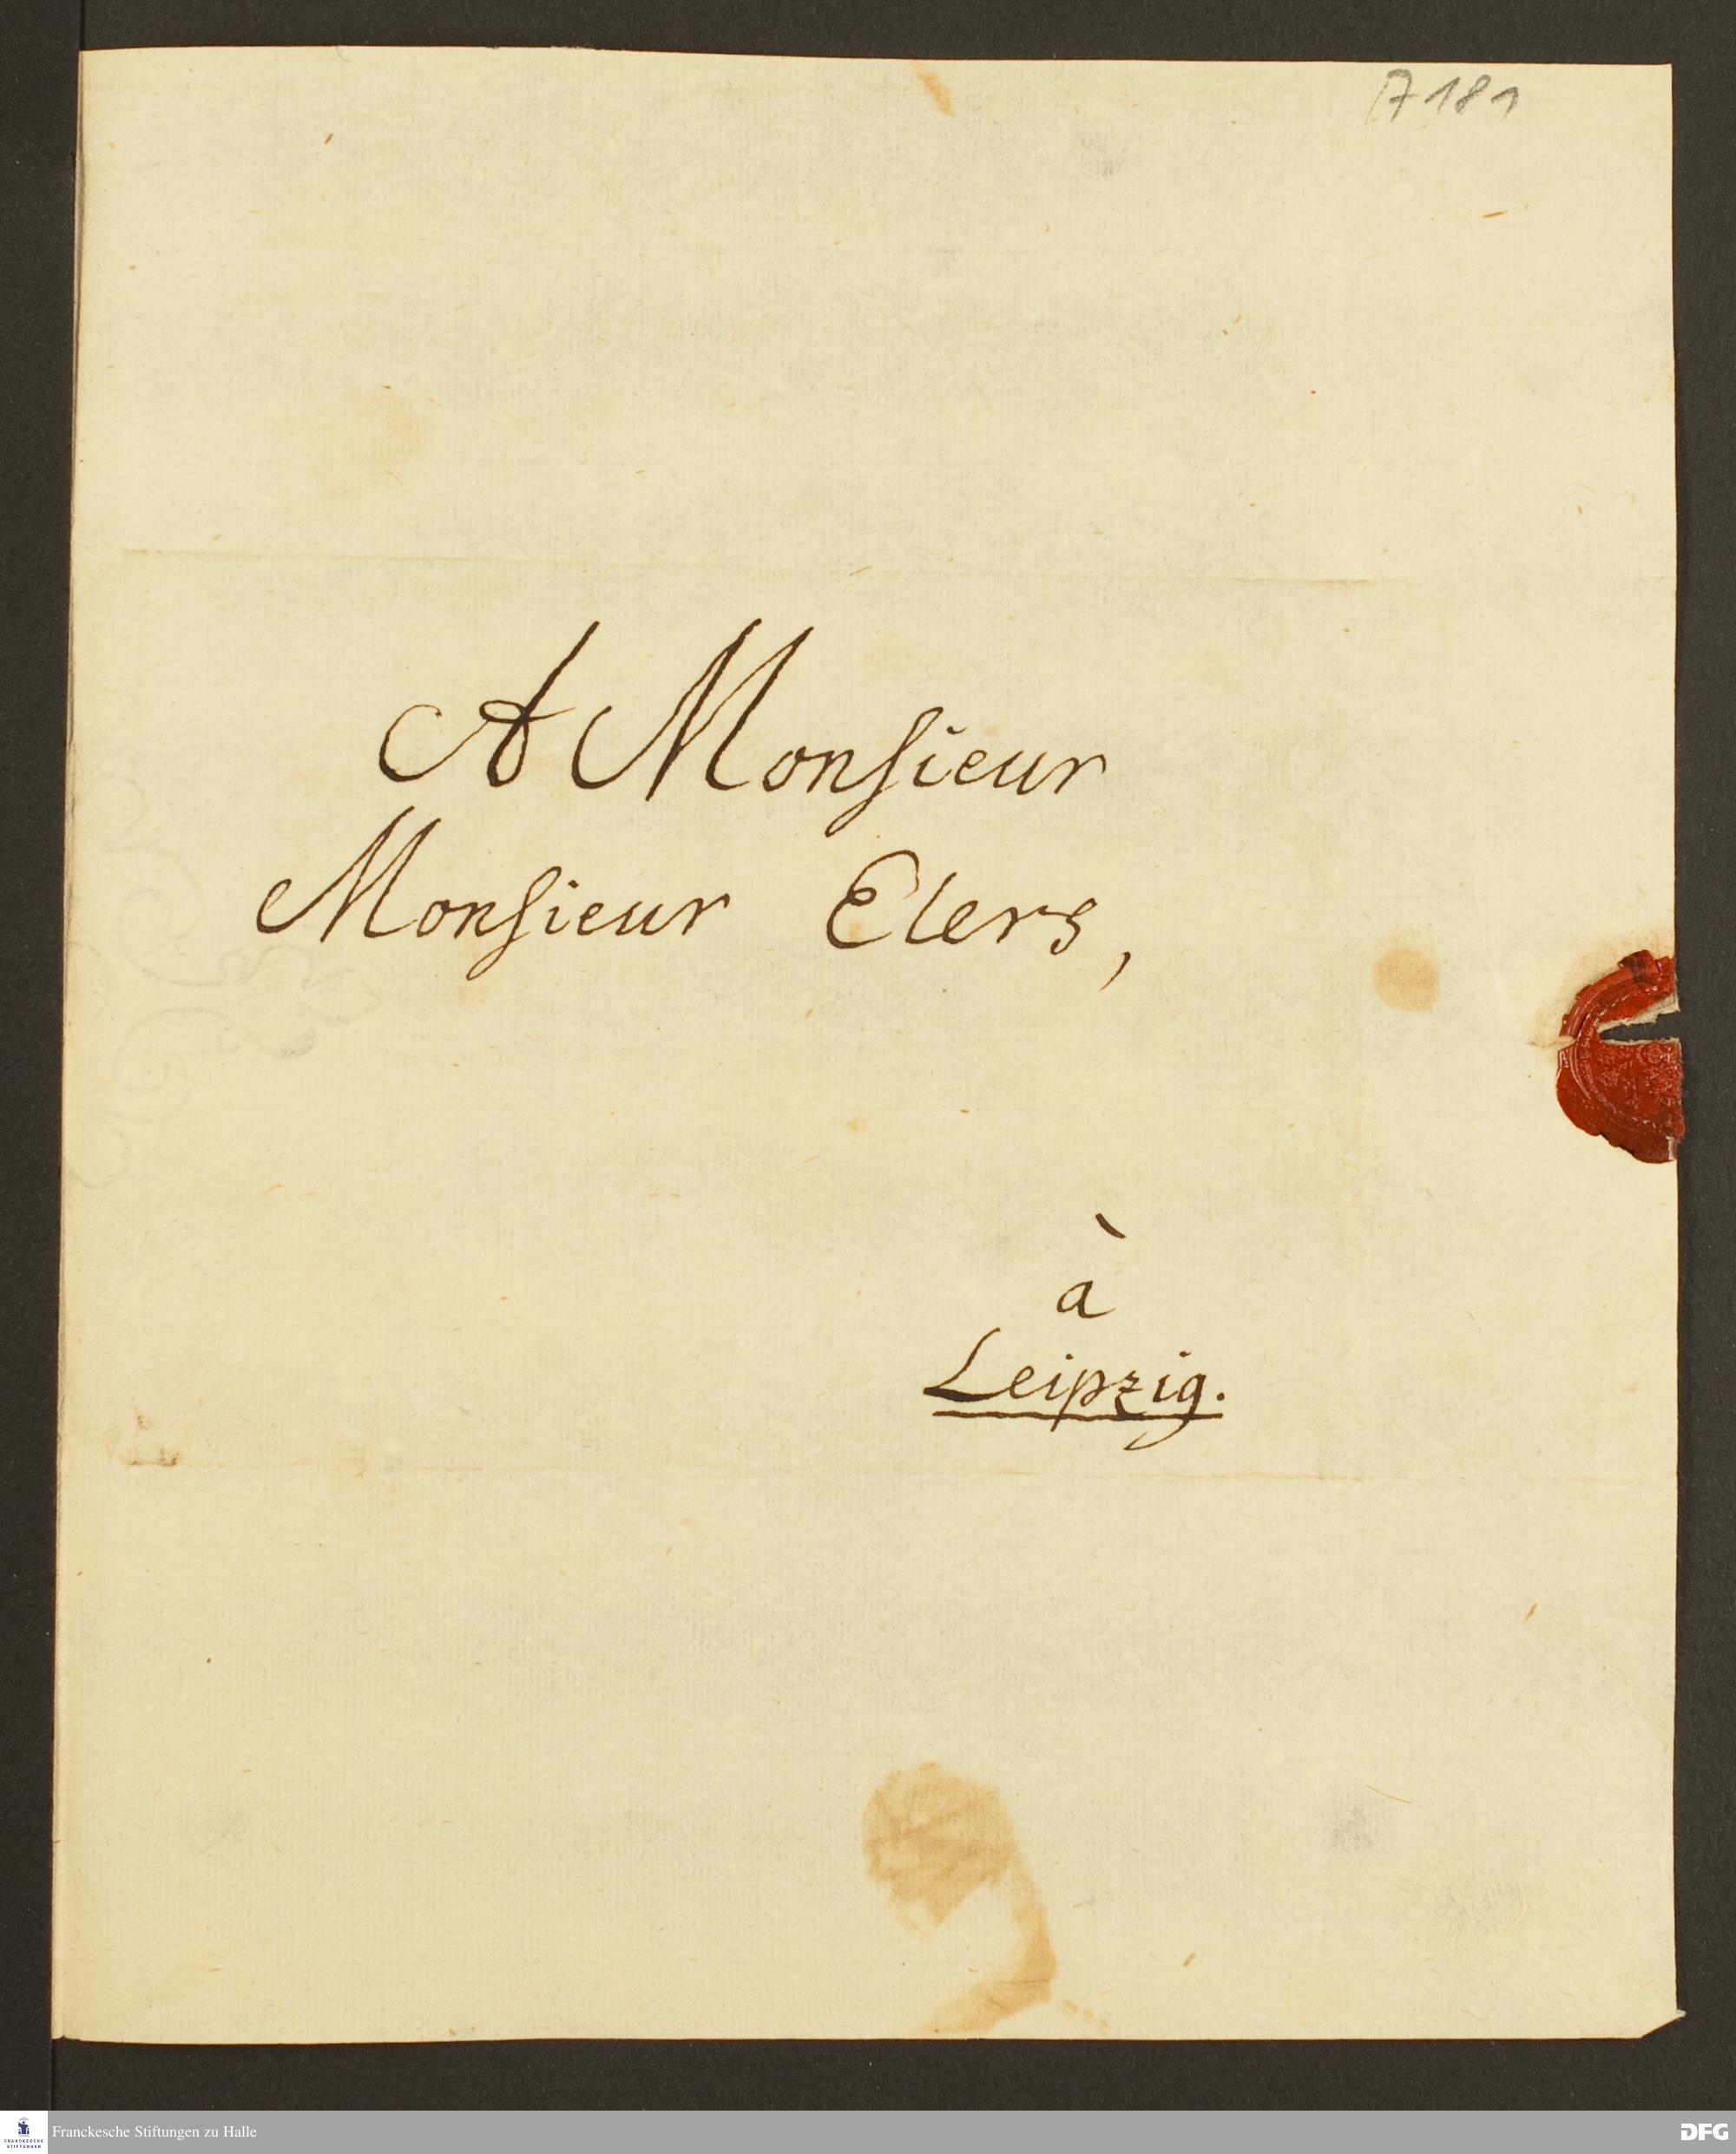 A 181
A Monsieur
Monsieur Elers,
à
Leipzig.
Franckesche Stiftungen zu Halle
FRANCKESCHE
STIFTUNGEN
DFG